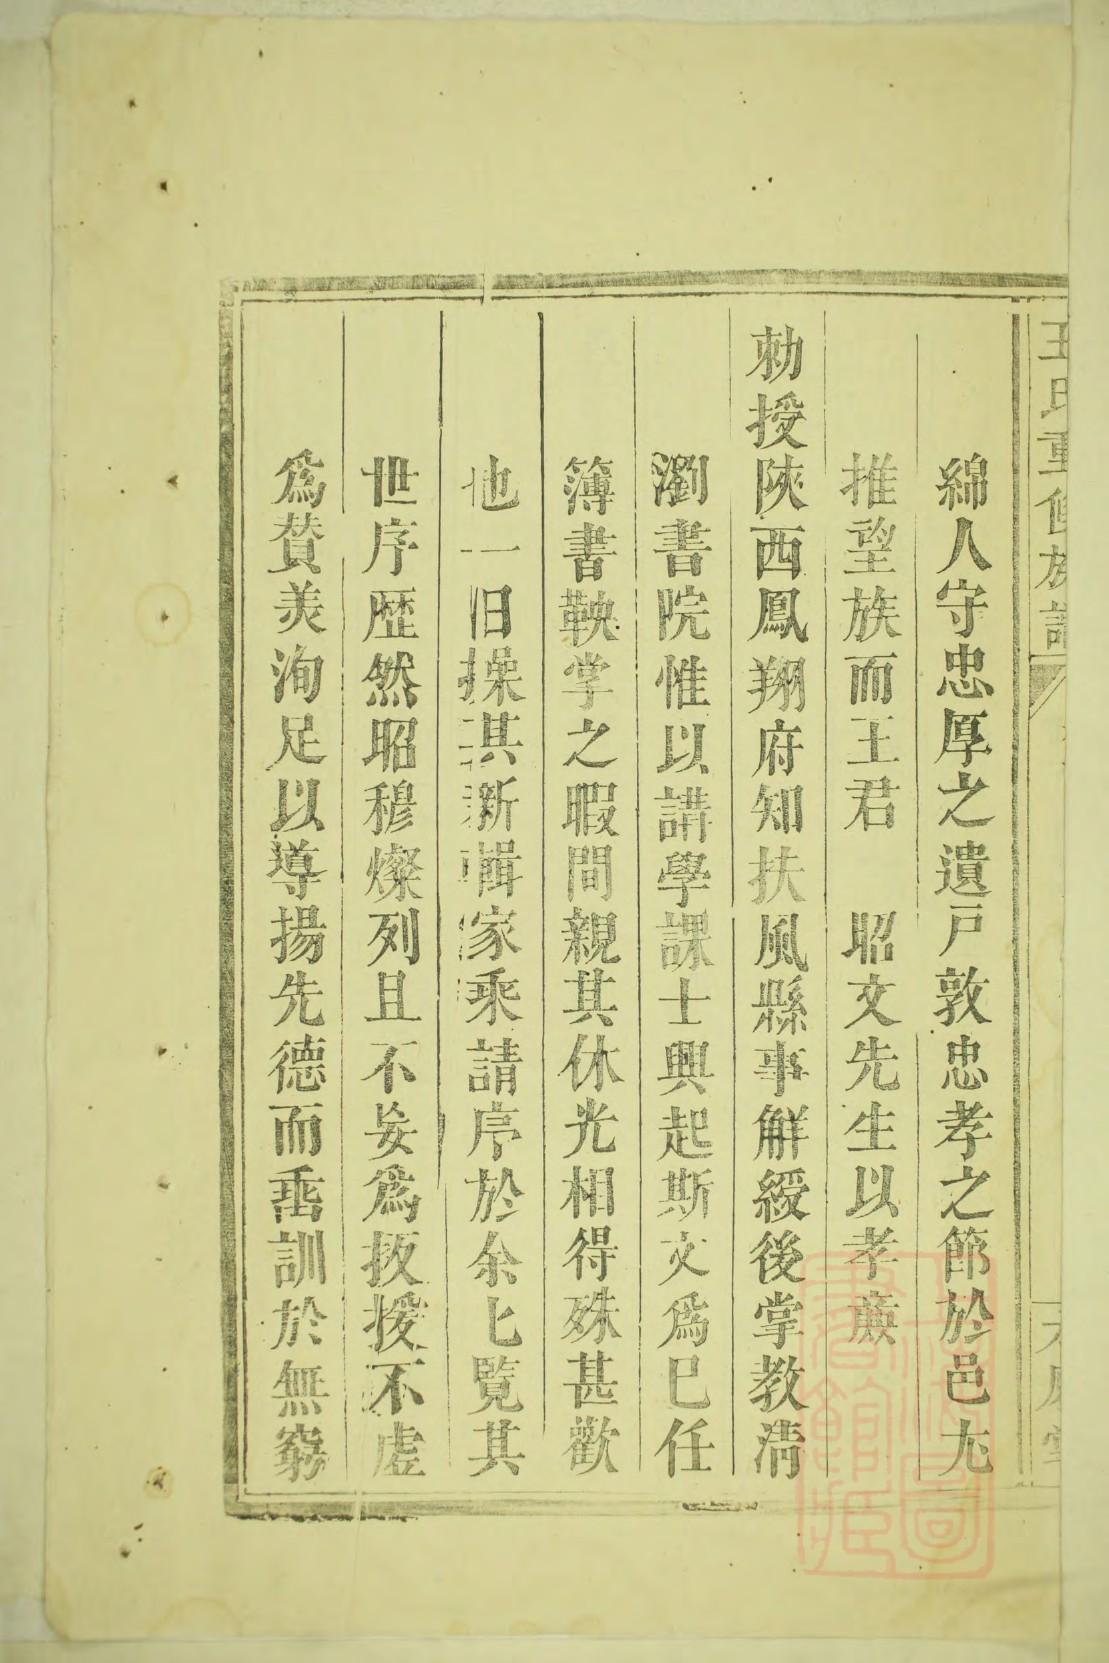 王氏重修族譜
綿人守忠厚之遺戸敦忠孝之節於邑尢
推望族而王君 昭文先生以孝㢘
勅授陝西鳳翔府知扶風縣事解綬後掌教淸
瀏書院惟以講學課士興起斯文爲巳任
簿書鞅掌之暇間親其休光相得殊甚歡
也一旧操其新輯家乘請序於余匕覽其
世序歴然昭穆燦列且不妄爲扳援不虚
爲賛美洵足以導揚先德而垂訓於無窮